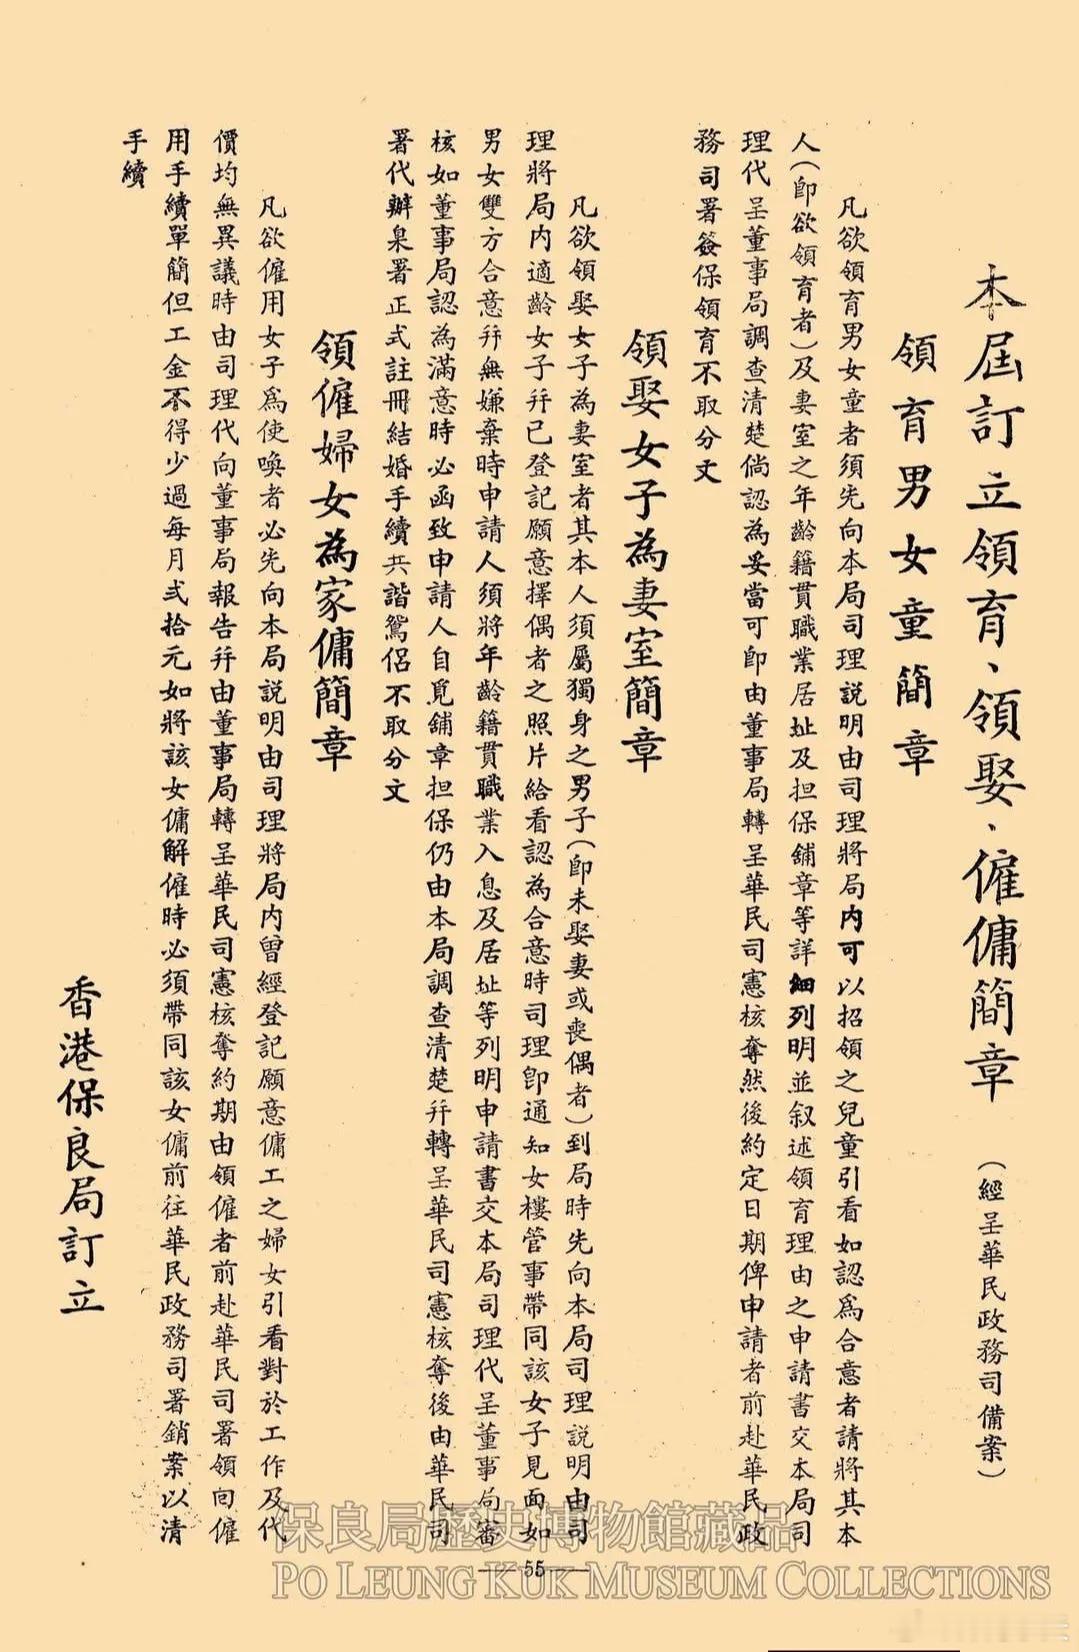 本屆訂立領育、領娶、僱傭簡章(經呈華民政務司備案)
領育男女童簡章
凡欲領育男女童者須先向本局司理說明由司理將局內可以招領之兒童引看如認爲合意者請將其本
人(即欲領育者)及妻室之年齡籍貫職業居址及担保舖章等詳細列明並叙述領育理由之申請書交本局司
理代呈董事局調查清楚倘認為妥當可即由董事局轉呈華民司憲核奪然後約定日期俾申請者前赴華民政
務司署簽保領育不取分文
領娶女子為妻室簡章
凡欲領娶女子為妻室者其本人須屬獨身之男子(即未娶妻或喪偶者)到局時先向本局司理說明由司
理將局內適齡女子幷已登記願意擇偶者之照片給看認為合意時司理即通知女樓管事帶同該女子見面如
男女雙方合意幷無嫌棄時申請人須將年齡籍貫職業入息及居址等列明申請書交本局司理代呈董事局審
核如董事局認為滿意時必函致申請人自覓舖章担保仍由本局調查清楚幷轉呈華民司憲核奪後由華民司
署代辦臬署正式註冊結婚手續共諧鴛侶不取分文
領僱婦女為家傭簡章
凡欲僱用女子爲使喚者必先向本局說明由司理將局內曾經登記願意傭工之婦女引看對於工作及代
價均無異議時由司理代向董事局報告幷由董事局轉呈華民司憲核奪約期由領僱者前赴華民司署領囘僱
用手續單簡但工金不得少過每月弍拾元如將該女傭解僱時必須帶同該女傭前往華民政務司署銷案以清
手續
香港保良局訂立
—55—
保良局歷史博物館藏品
PO LEUNG KUK MUSEUM COLLECTIONS